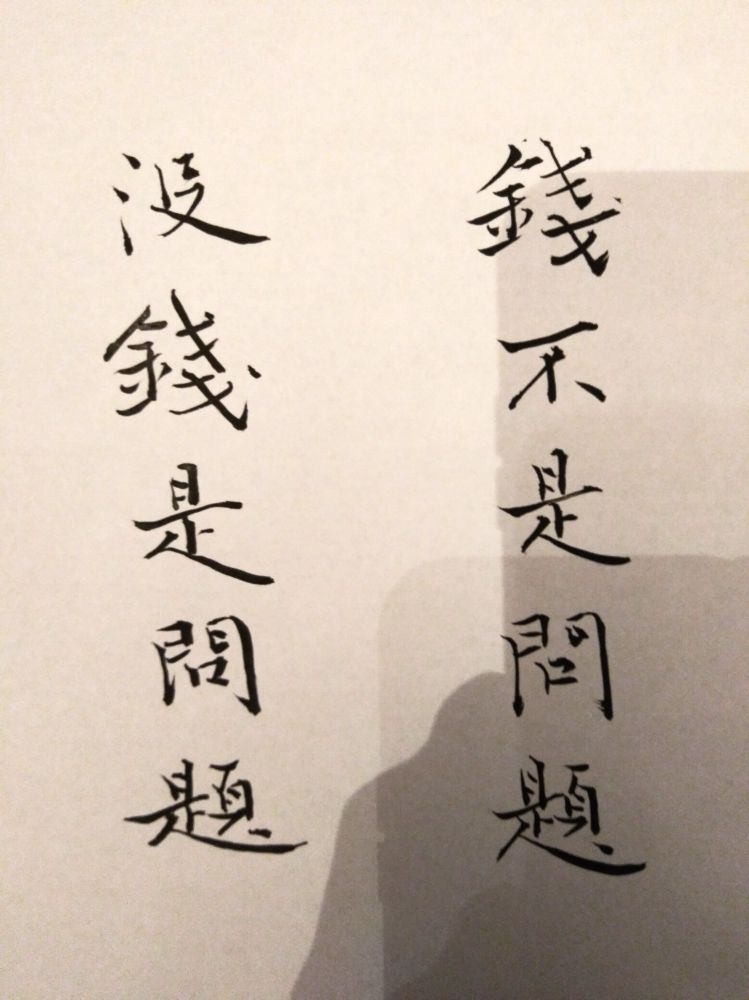 錢不是問題
沒錢是問題